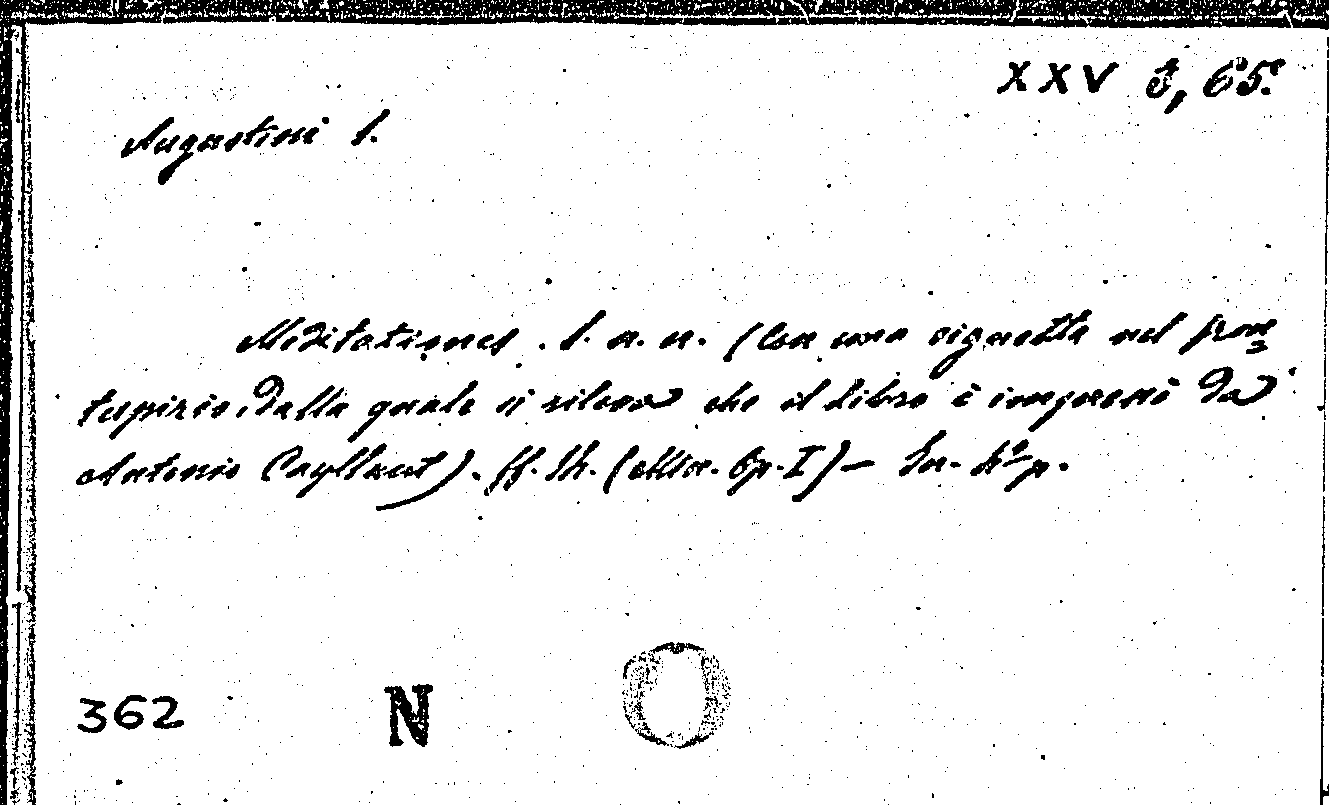 XXV J, 65.
Augustini S.
Meditationes. S. a. n. (Con una vignetta nel fron
tispizio, dalla quale si rileva che il libro è impresso da
Antonio Cayllaut). ff. (Misc. Op. I) – In-
362
N